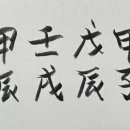 甲子
戊辰
壬戌
甲辰